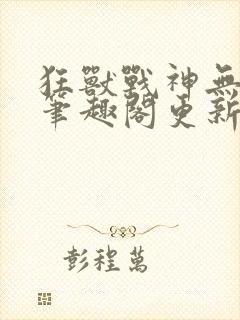 狂獸戰神無
筆趣閣更新
彭程萬